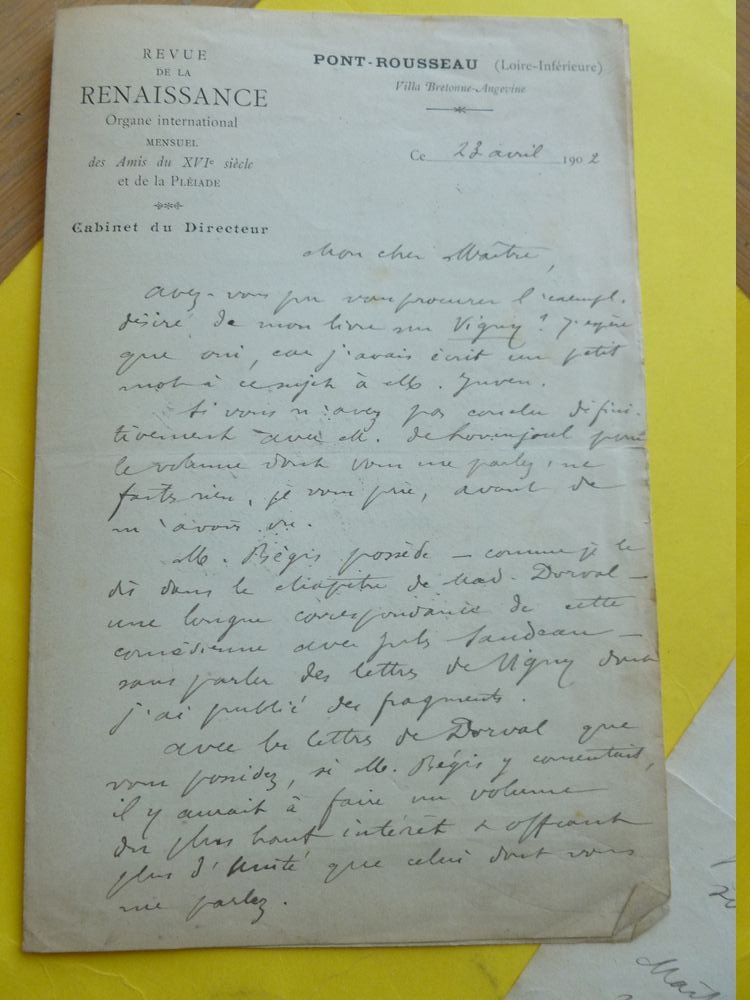 REVUE
DE LA
RENAISSANCE
Organe international
MENSUEL
des Amis du XVIe siècle
et de la PLÉIADE
Cabinet du Directeur
PONT-ROUSSEAU (Loire-Inférieure)
Villa Bretonne-Angevine
Ce 23 avril 1902
Mon cher Maître,
avez-vous pu vous procurer l'exempl.
désiré de mon livre sur Vigny? J'espère
que oui, car j'avais écrit un petit
mot à ce sujet à M. Juven.
Si vous n'avez pas conclu défini-
tivement avec M. de Lovenjoul pour
le volume dont vous me parlez, ne
faites rien, je vous prie, avant de
m'avoir vu.
M. Bégis possède – comme je le
dis dans le chapitre de Mad. Dorval –
une longue correspondance de cette
comédienne avec Jules Sandeau –
sans parler des lettres de Vigny dont
j'ai publié des fragments.
avec les lettres de Dorval que
vous possédez, si M. Bégis y consentait,
il y aurait à faire un volume
du plus haut intérêt & offrant
plus d'unité que celui dont vous
me parlez.